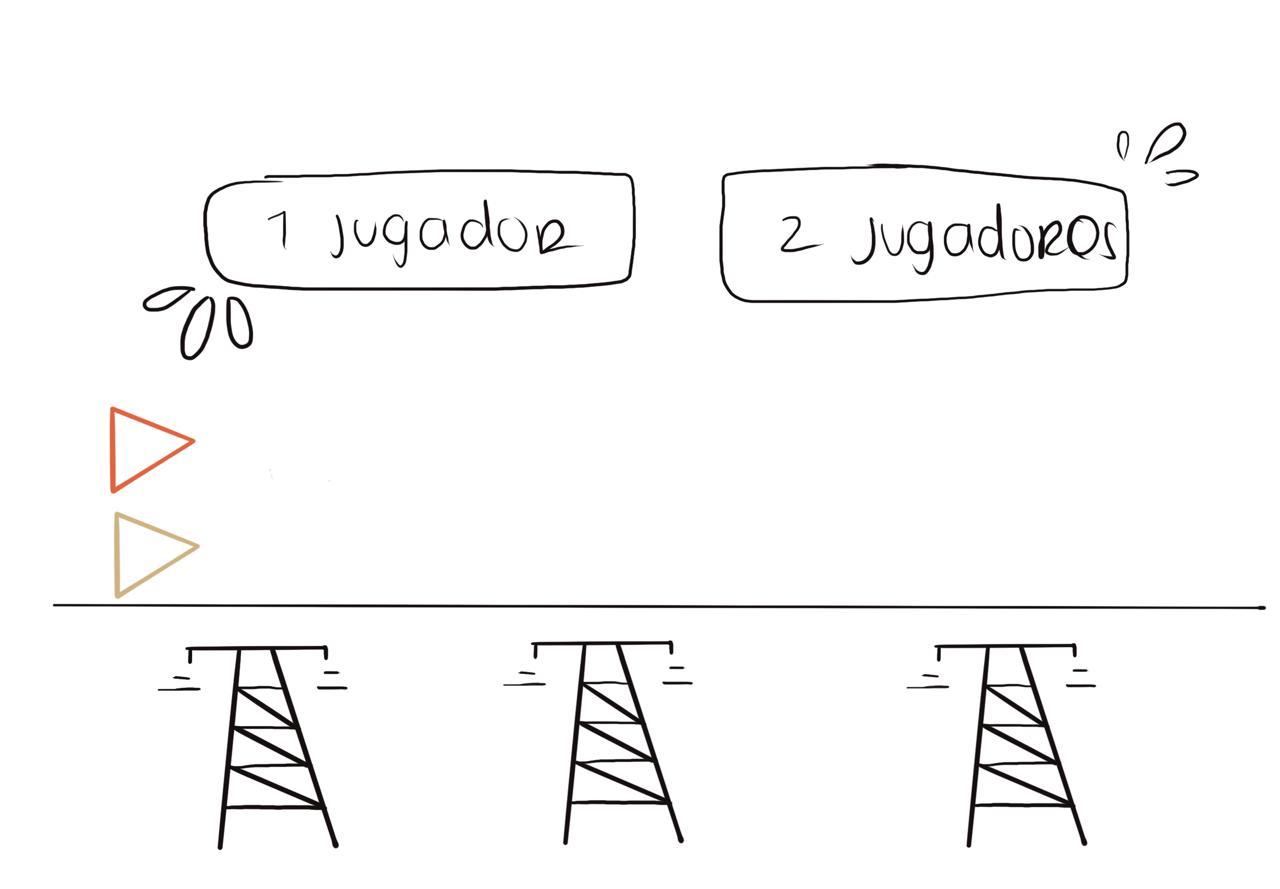 1 jugador
2 jugadores